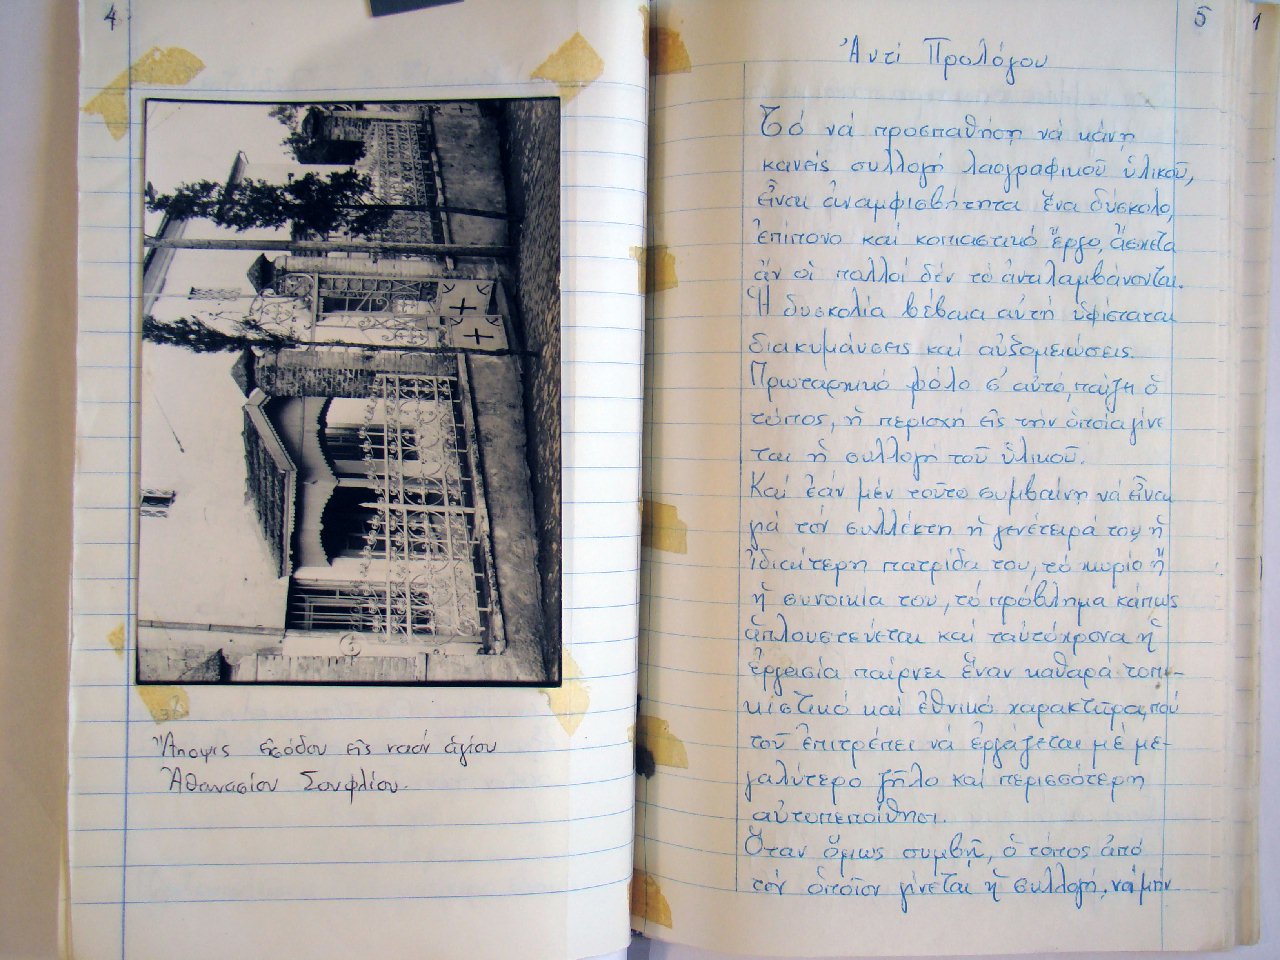 4
Ἄποψις εἰσόδου εἰς ναόν ἁγίου
Ἀθανασίου Σουφλίου.
5
1
Ἀντί Προλόγου
Τό νά προσπαθήσῃ νά κάνῃ
κανείς συλλογή λαογραφικοῦ ὑλικοῦ,
εἶναι ἀναμφισβήτητα ἕνα δύσκολο,
ἐπίπονο καί κοπιαστικό ἔργο, ἄσχετα
ἄν οἱ πολλοί δέν τό ἀντιλαμβάνονται.
Ἡ δυσκολία βέβαια αὐτή ὑφίσταται
διακυμάνσεις καί αὐξομειώσεις.
Πρωταρχικό ρόλο σ' αὐτό, παίζει ὁ
τόπος, ἡ περιοχή εἰς τήν ὁποία γίνε
ται ἡ συλλογή τοῦ ὑλικοῦ.
Καί ἐάν μέν τοῦτο συμβαίνῃ νά εἶναι
γιά τόν συλλέκτη ἡ γενέτειρά του, ἡ
ἰδιαίτερη πατρίδα του, τό χωριό ἤ
ἡ συνοικία του, τό πρόβλημα κάπως
ἁπλουστεύεται καί ταὐτόχρονα ἡ
ἐργασία παίρνει ἕναν καθαρά τοπι-
κιστικό καί ἐθνικό χαρακτῆρα, πού
τοῦ ἐπιτρέπει νά ἐργάζεται μέ με-
γαλύτερο ζῆλο καί περισσότερη
αὐτοπεποίθηση.
Ὅταν ὅμως συμβῆ, ὁ τόπος ἀπό
τόν ὁποῖον γίνεται ἡ συλλογή, νά μήν